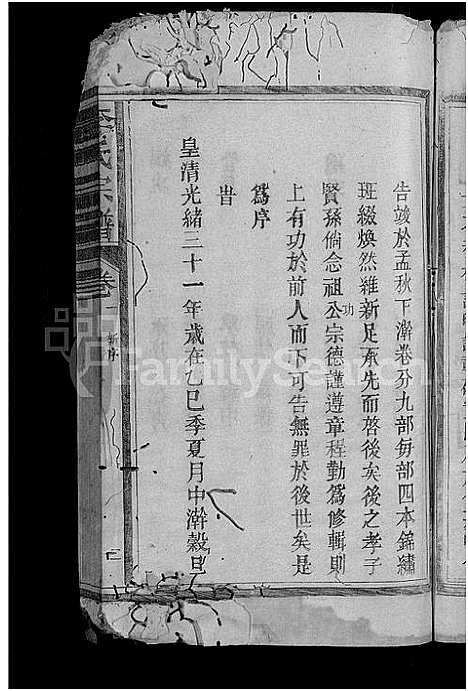 告竣於孟秋下澣卷分九部每部四本錦繡
班綴煥然維新足承先而啓後矣後之孝子
賢孫倘念祖公宗德謹遵章程勤為修輯則
功
上有功於前人而下可告無罪於後世矣是
為序
昔
皇清光緒三十一年歲在乙巳季夏月中澣穀旦
李氏宗譜 卷一 新序
FamilySearch